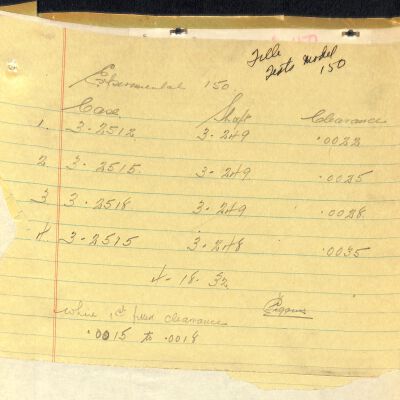 File
Tests Model
150
Experimental 150.
Case Shaft Clearance
1. 3.2512 3.249 .0022
2 3.2515 3.249 .0025
3 3.2518 3.249 .0028
4. 3.2515 3.248 .0035
4-18-32
clearance
.0015 to .0018